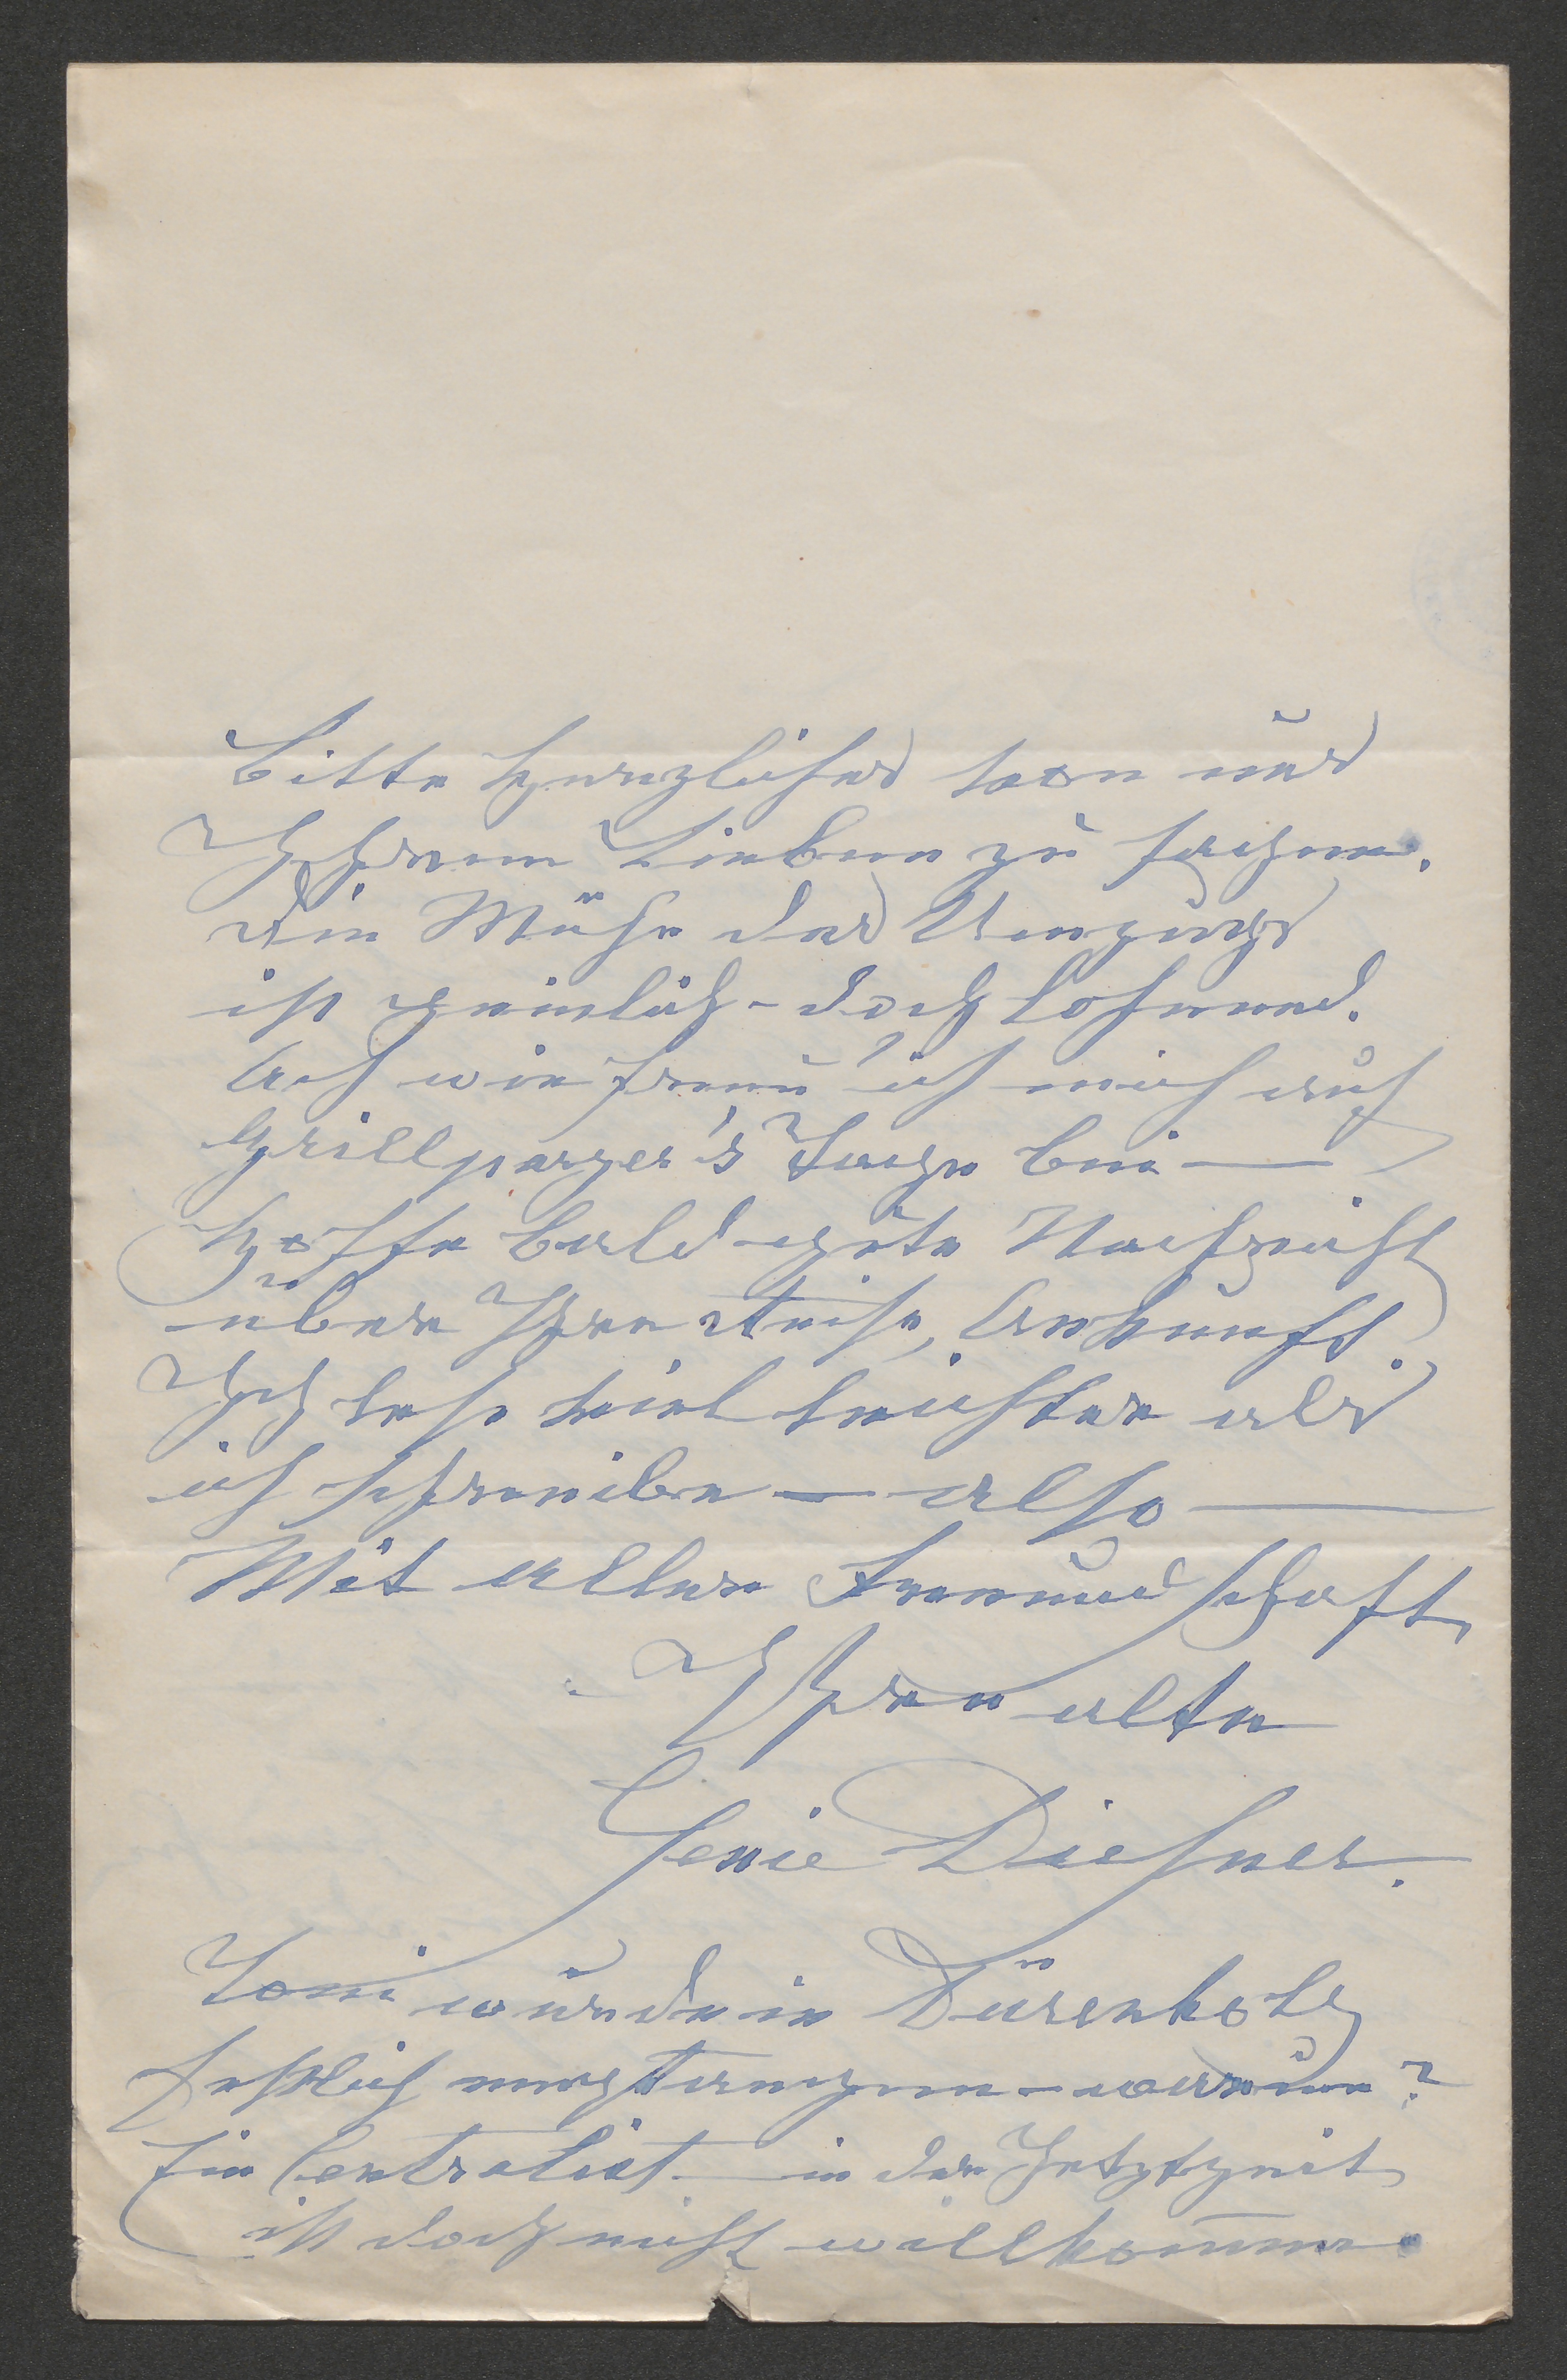 Bitte Herzliches von uns
Ihren Lieben zu sagen.
Die Mühe des Umzugs
ist greulich – doch lohnend.
Ach wie freu' ich mich auf
Grillparzer's Tage bei —
Hoffe bald gute Nachricht
über Ihre Reise, Ankunft.
Ich lese viel leichter als
ich schreibe — also —
Mit aller Freundschaft,
Ihre alte
Genie Diesner.
Toni wurde in Dürenholz
festlich empfangen – warum?
Ein Centralist in der Jetztzeit
ist doch nicht willkommen.